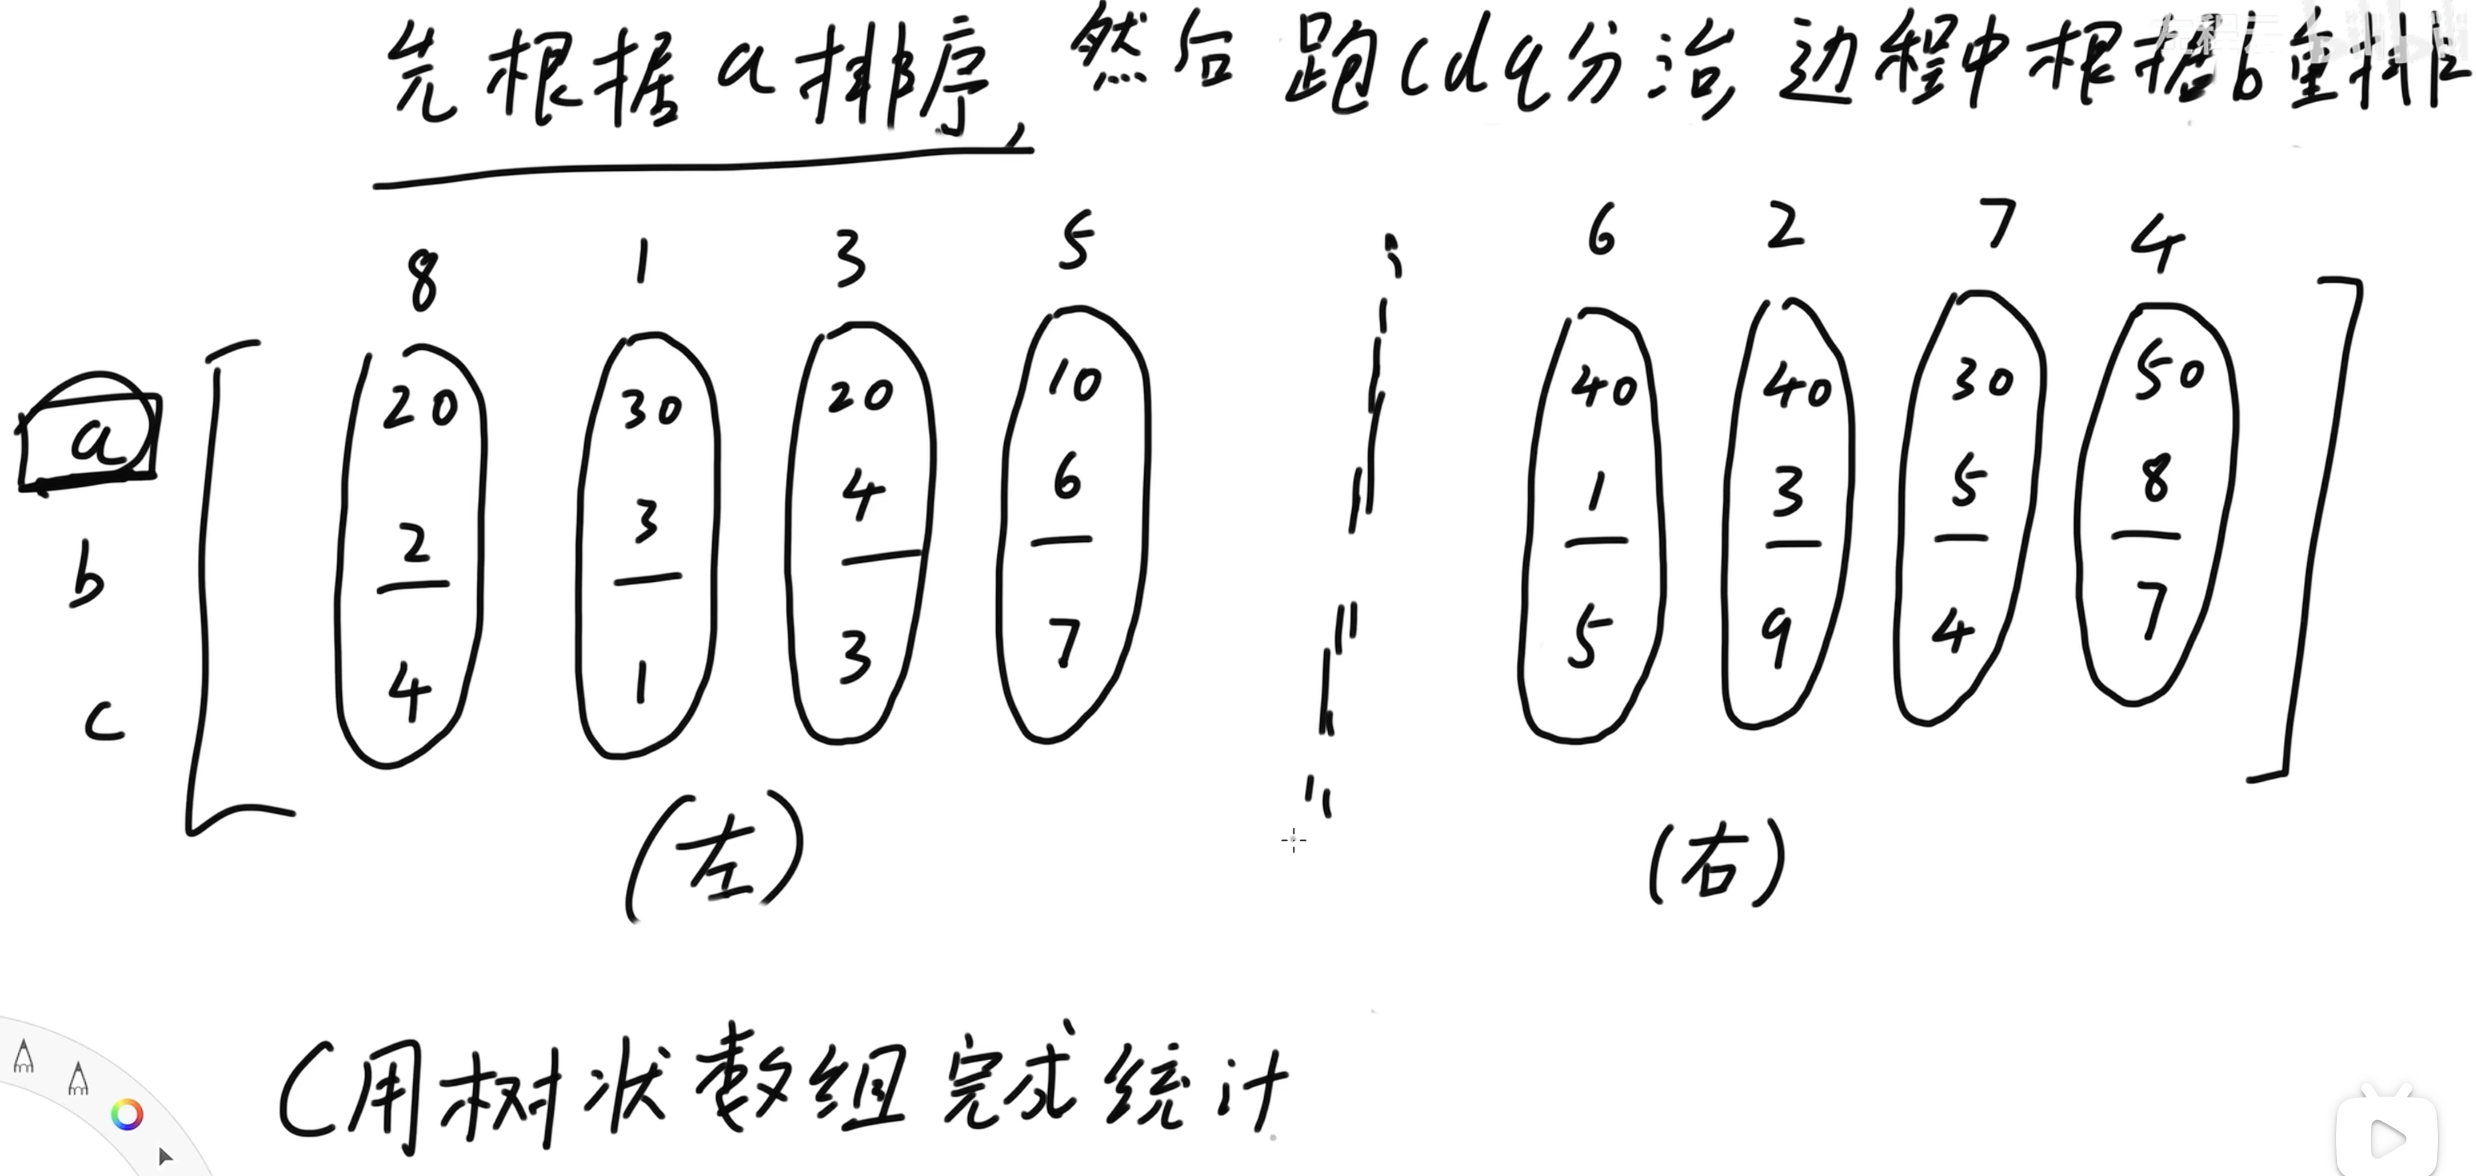 先根据a排序,然后跑cdq分治,边程中根据b重排
8 1 3 5 6 2 7 4
a 20 30 20 10 40 40 30 50
b 2 3 4 6 1 3 5 8
c 4 1 3 7 5 9 4 7
(左) (右)
C用树状数组完成统计